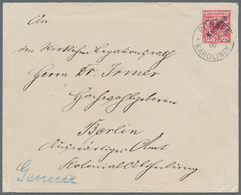 An
den Kaiserlichen Legationsrath
Herrn Dr. Irmer
Hochwohlgeboren
Berlin
Auswärtiges Amt
Kolonial Abtheilung
KAROLINEN